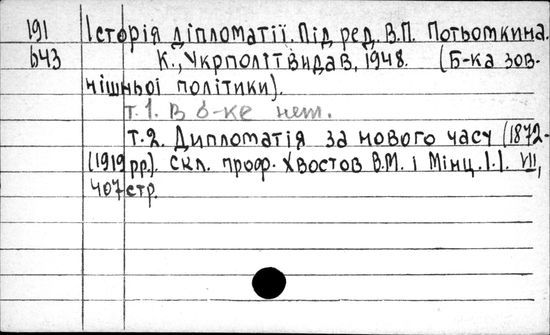 191 Історія дипломатії. Під ред. В.П. Потьомкина.
б43 К., Укрполітвидав, 1948. (Б-ка зов-
нішньої політики).
т. 1. В б-ке нет.
т. 2. Дипломатія за нового часу (1872-
(1919 рр.). Скл. проф. Хвостов В.М. і Мінц. І.І. VII,
407 стр.